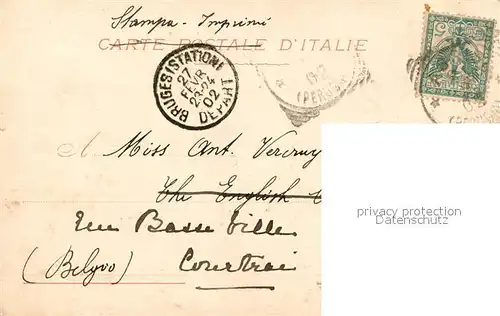 Stampa - Imprimé
CARTE POSTALE D'ITALIE
BRUGES (STATION)
27
FEVR
23-24
02
DEPART
Miss Ant. Vercruy
The English
Rue Basse Ville
(Belgio) Courtrai
privacy protection
watermark